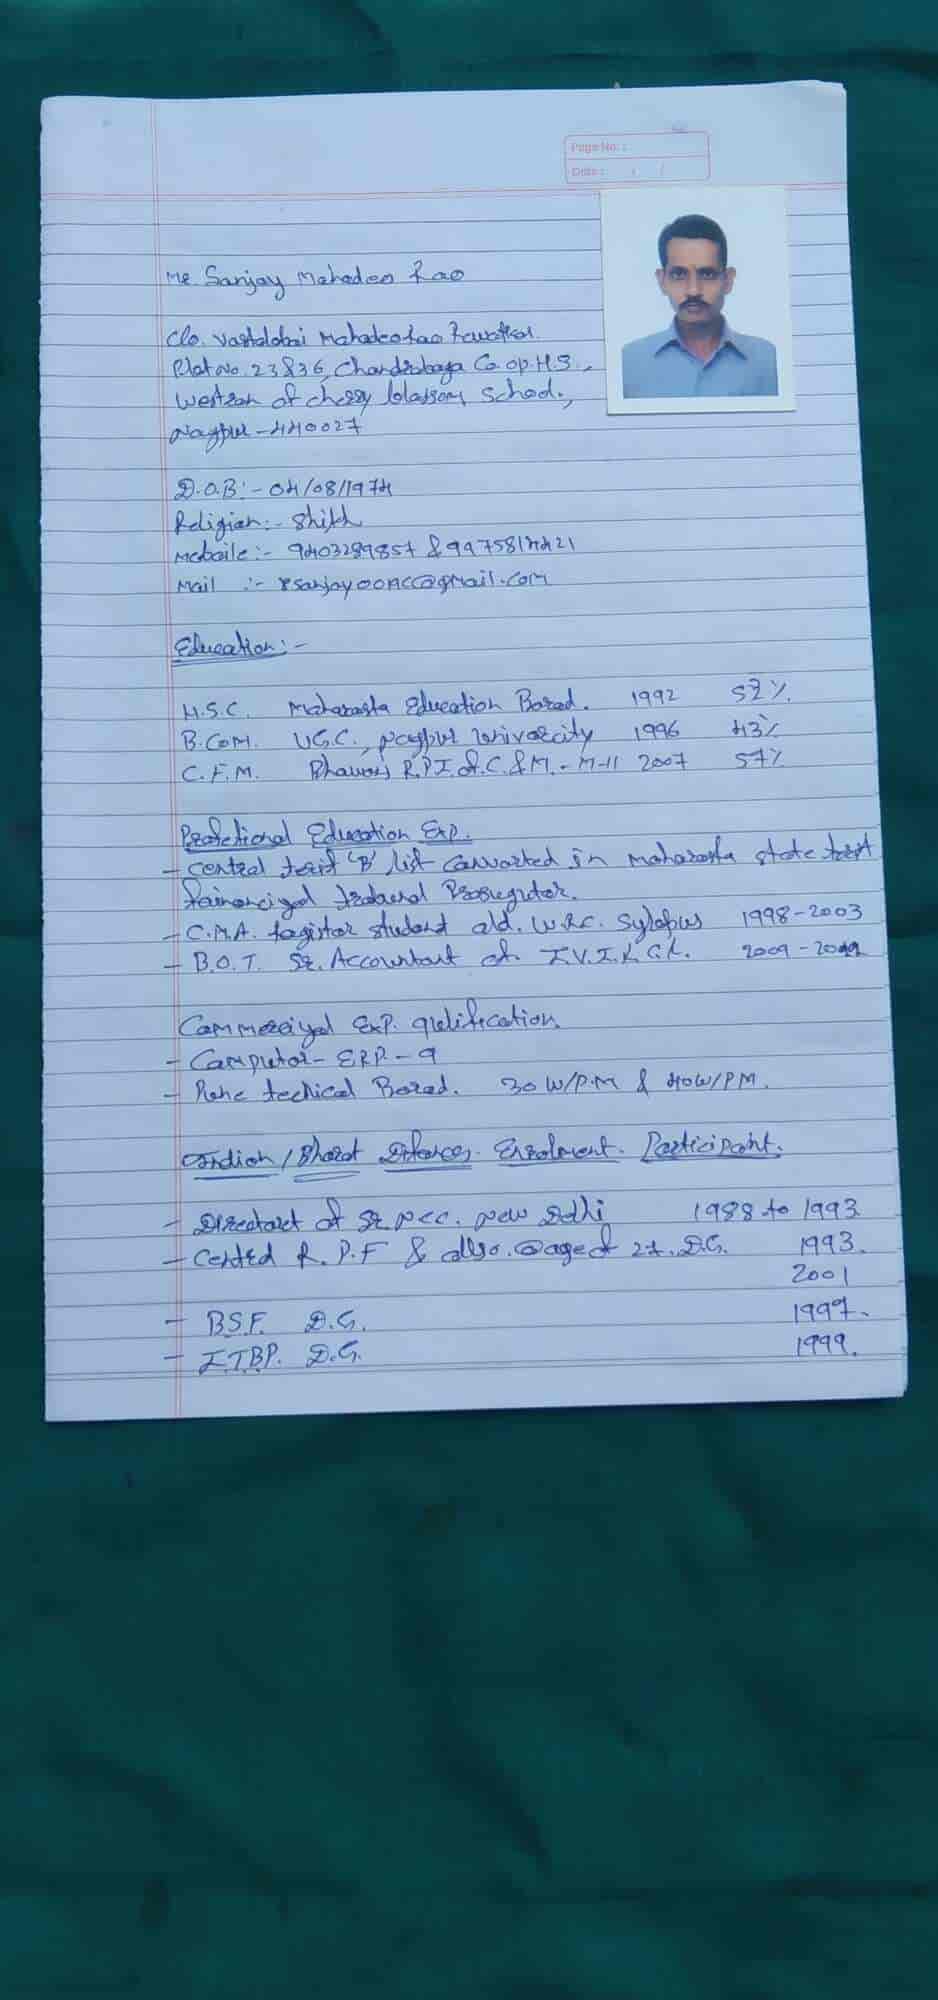 Page No. :
Date : / /
Mr. Sanjay Mahadeo Rao
C/o. Mahadeorao
Plot No. 23836, Chandrabaga Co. op. H.S.,
Westran of cherry blassom, School.,
Nagpur - 440027
D.O.B:- 04/08/1974
Religian:- Shikh
Mobaile:- 9403289857 & 9975814421
Mail :- rsanjay00ncc@gmail.com
Education:-
H.S.C. Maharasta Education Borad. 1992 52%
B.COM. U.G.C., Nagpur Univarcity 1996 43%
C.F.M. Bhawan's R.P.I. of. C. & M. - M-11 2007 57%
Profetional Education Exp.
- Central 'B' list Canvarted in Maharasta state
- C.M.A. ragistar student old. W.R.C. Sylabus 1998-2003
- B.O.T. Sr. Accountant of. I.V.I.K.G.K. 2009-
Cammerciyal Exp. qulification
- Camputar - ERP - 9
- techical Borad. 30 W/P.M & 40W/P.M.
Indian / Bharat Difences. Enrolment. Participaint.
- Directart of Sr. NCC. New Delhi 1988 to 1993
- Centred R.P.F & also. age of 27. D.G. 1993.
2001
- BSF. D.G. 1997.
- I.T.B.P. D.G. 1999.